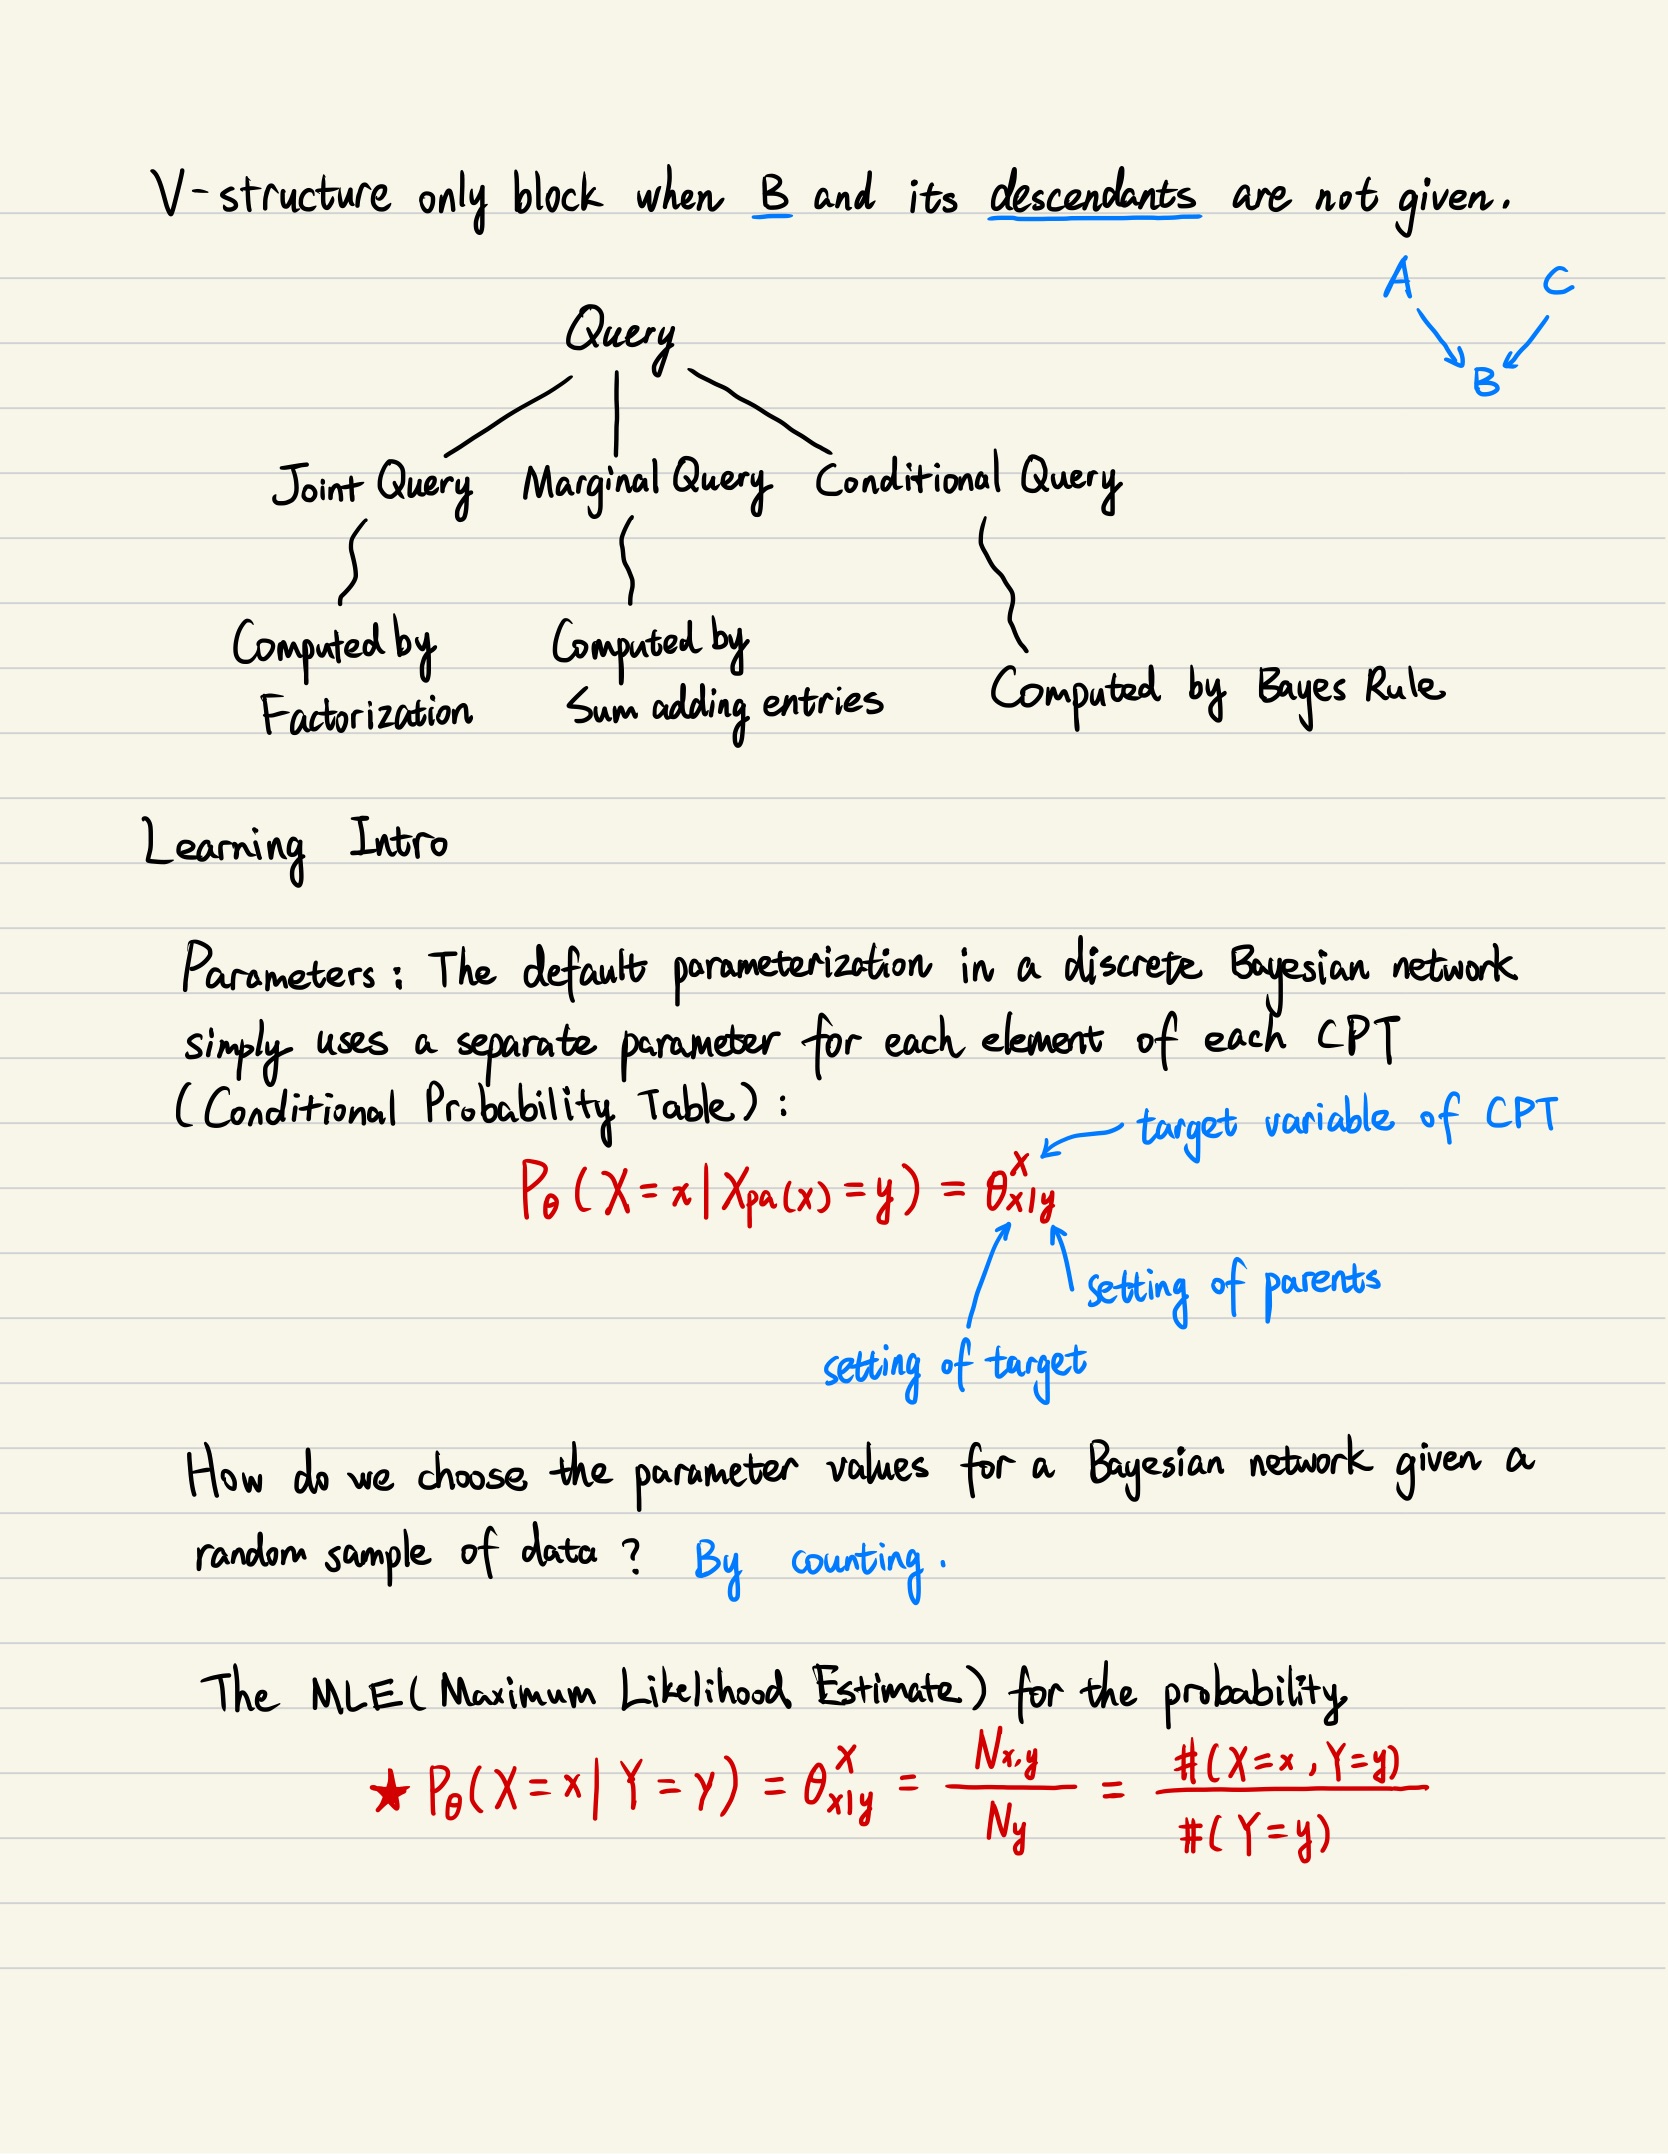 V-structure only block when B and its descendants are not given.
A C
B
Query
Joint Query Marginal Query Conditional Query
Computed by
Factorization
Computed by
Sum adding entries
Computed by Bayes Rule
Learning Intro
Parameters: The default parameterization in a discrete Bayesian network
simply uses a separate parameter for each element of each CPT
(Conditional Probability Table):
target variable of CPT
P_θ(X=x|X_pa(x)=y) = θ^X_x|y
setting of parents
setting of target
How do we choose the parameter values for a Bayesian network given a
random sample of data? By counting.
The MLE(Maximum Likelihood Estimate) for the probability
★ P_θ(X=x|Y=y) = θ^X_x|y = N_x,y / N_y = #(X=x, Y=y) / #(Y=y)